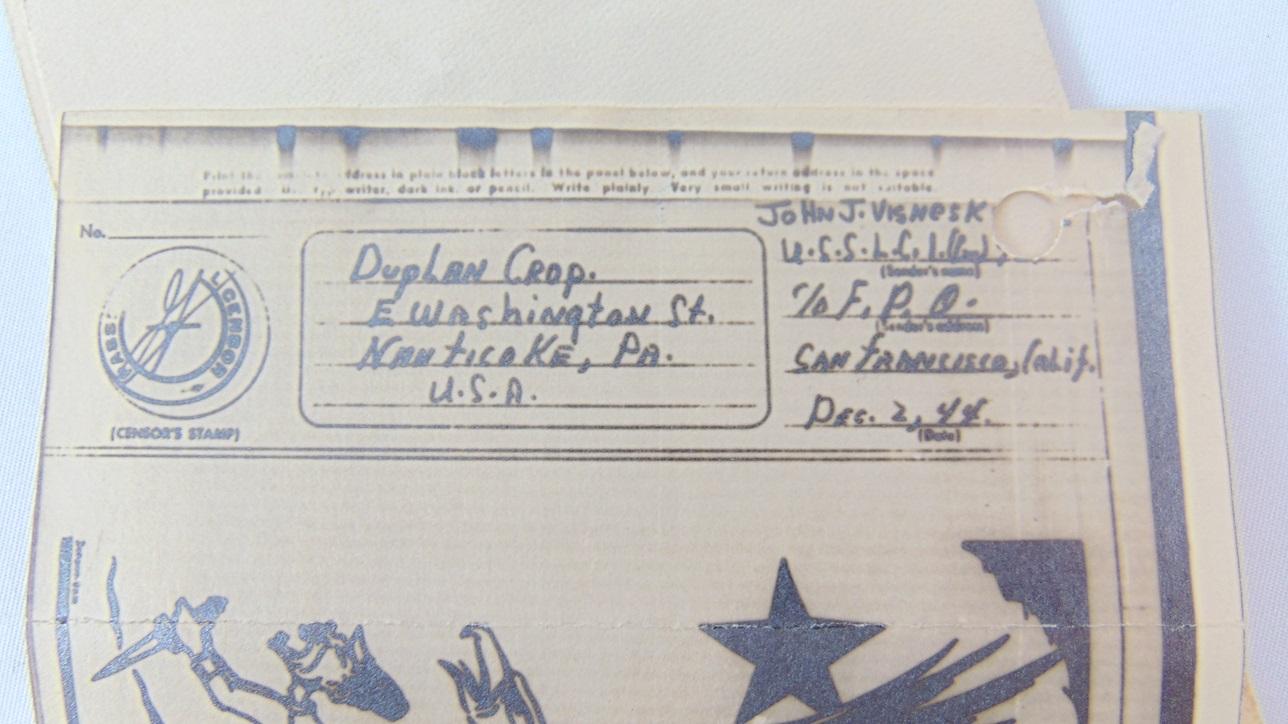 Print the complete address in plain block letters in the panel below, and your return address in the space
provided. Use typewriter, dark ink, or pencil. Write plainly. Very small writing is not suitable.
No.
PASSED CENSOR
(CENSOR'S STAMP)
DupLAN CROp.
E WAshingtoN St.
NANticoKE, PA.
U.S.A.
JOHN J. VISNESK
U.S.S.L.C.I.
(Sender's name)
% F.P.O.
(Sender's address)
SAN FRANCISCO, Calif.
DEC. 2, 44.
(Date)